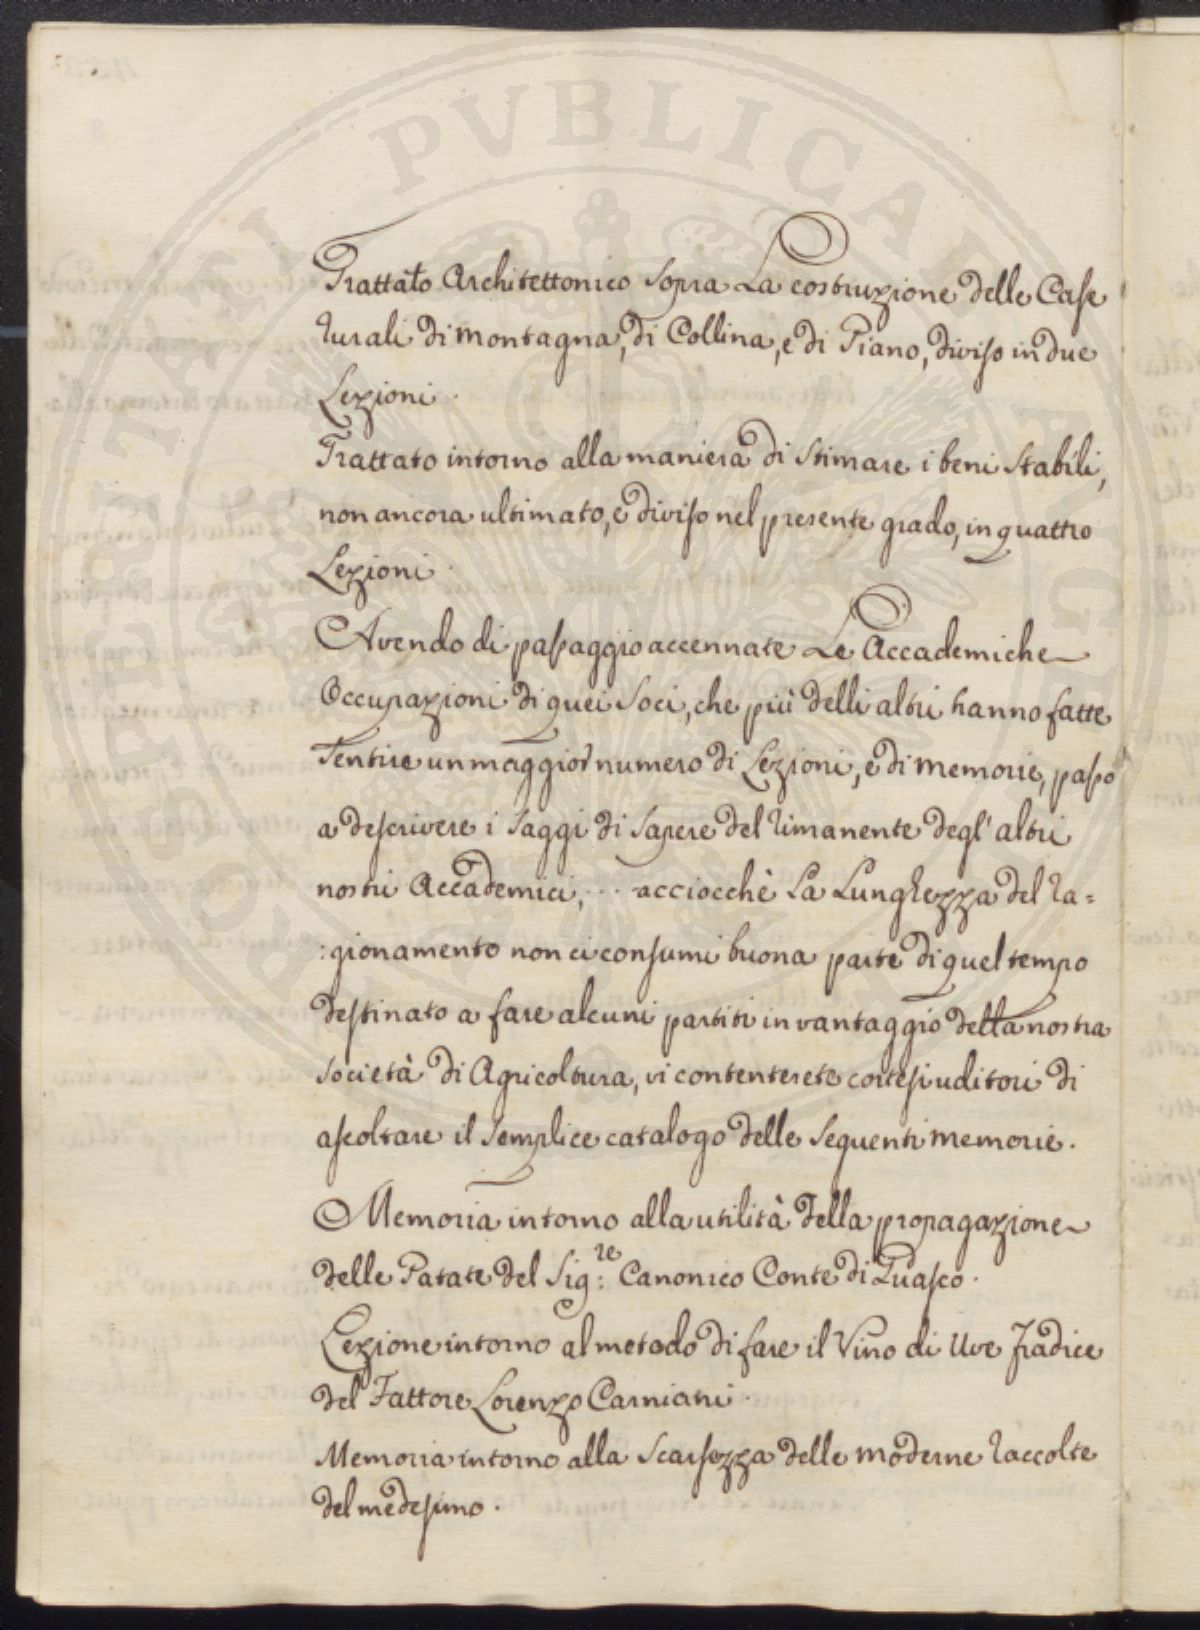 Trattato Architettonico sopra La costruzione delle Case
rurali di montagna, di Collina, e di Piano, diviso in due
Lezioni.
Trattato intorno alla maniera di stimare i beni stabili,
non ancora ultimato, e diviso nel presente grado, in quattro
Lezioni.
Avendo di passaggio accennate Le Accademiche
Occupazioni di quei Soci, che più delli altri hanno fatte
sentire un maggior numero di Lezioni, e di memorie, passo
a descrivere i saggi di sapere del rimanente degl' altri
nostri Accademici, ... acciocchè La Lunghezza del ra=
:gionamento non ci consumi buona parte di quel tempo
destinato a fare alcuni partiti in vantaggio della nostra
società di Agricoltura, vi contenterete cortesi uditori di
ascoltare il semplice catalogo delle seguenti memorie.
Memoria intorno alla utilità della propagazione
delle Patate del Sig:re Canonico Conte di Guasco.
Lezione intorno al metodo di fare il Vino di Uve fradice
del Fattore Lorenzo Carniani.
Memoria intorno alla scarsezza delle moderne raccolte
del medesimo.
PUBLICAE